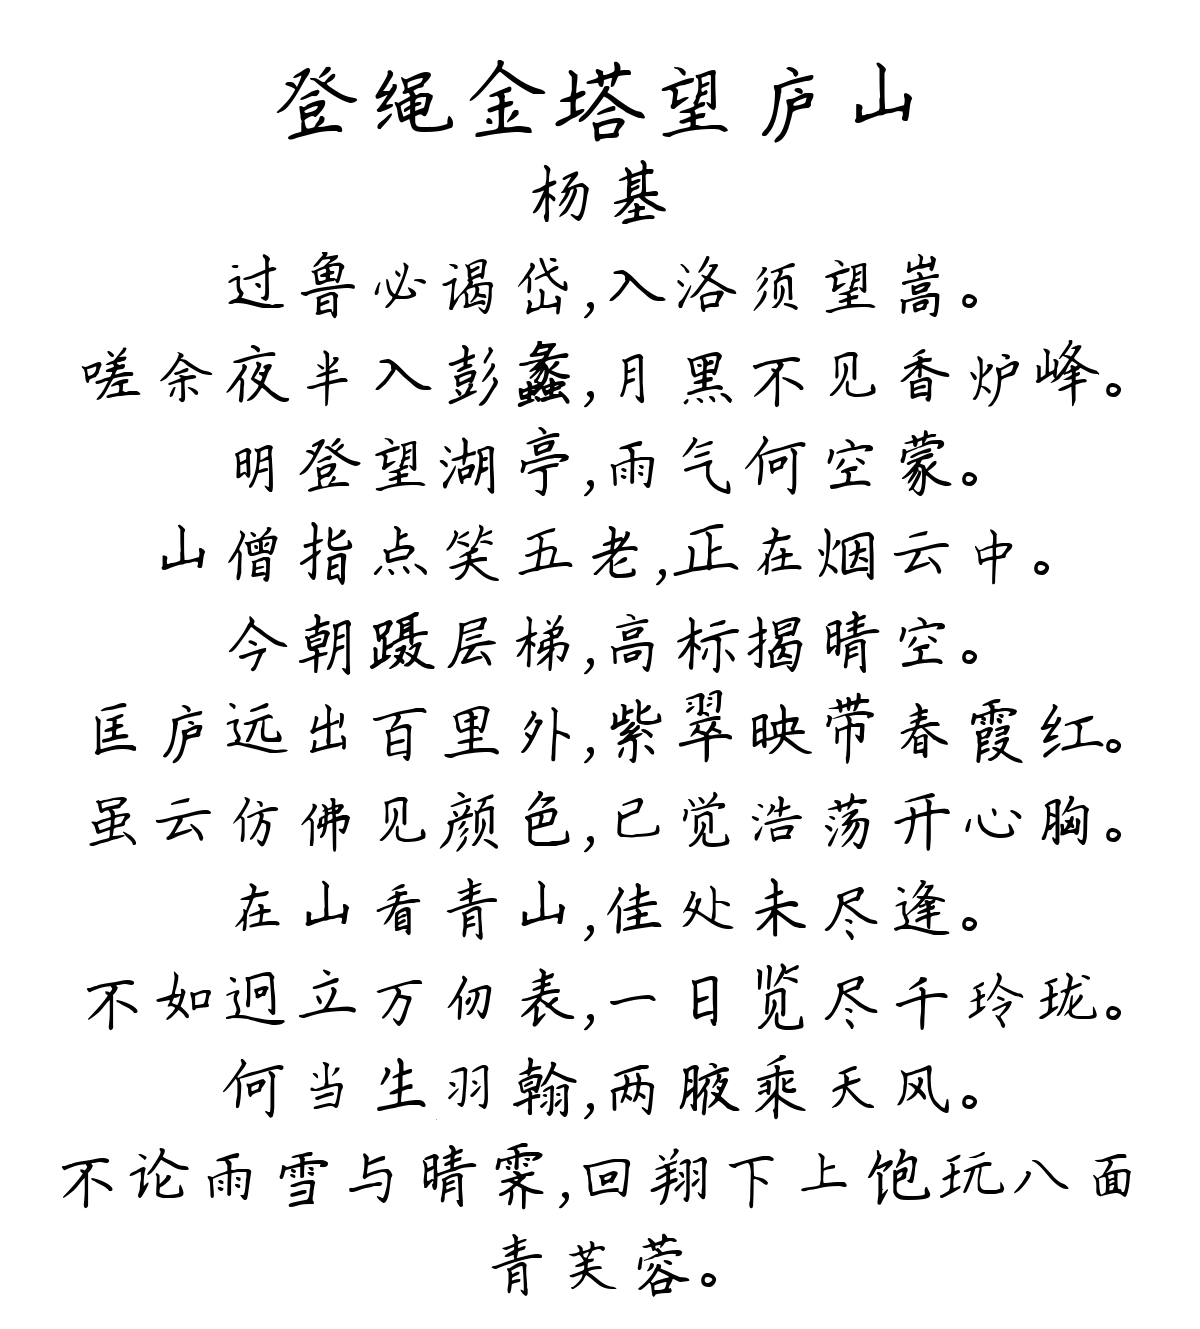 登绳金塔望庐山
杨基
过鲁必谒岱,入洛须望嵩。
嗟余夜半入彭蠡,月黑不见香炉峰。
明登望湖亭,雨气何空蒙。
山僧指点笑五老,正在烟云中。
今朝蹑层梯,高标揭晴空。
匡庐远出百里外,紫翠映带春霞红。
虽云仿佛见颜色,已觉浩荡开心胸。
在山看青山,佳处未尽逢。
不如迥立万仞表,一日览尽千玲珑。
何当生羽翰,两腋乘天风。
不论雨雪与晴霁,回翔下上饱玩八面
青芙蓉。